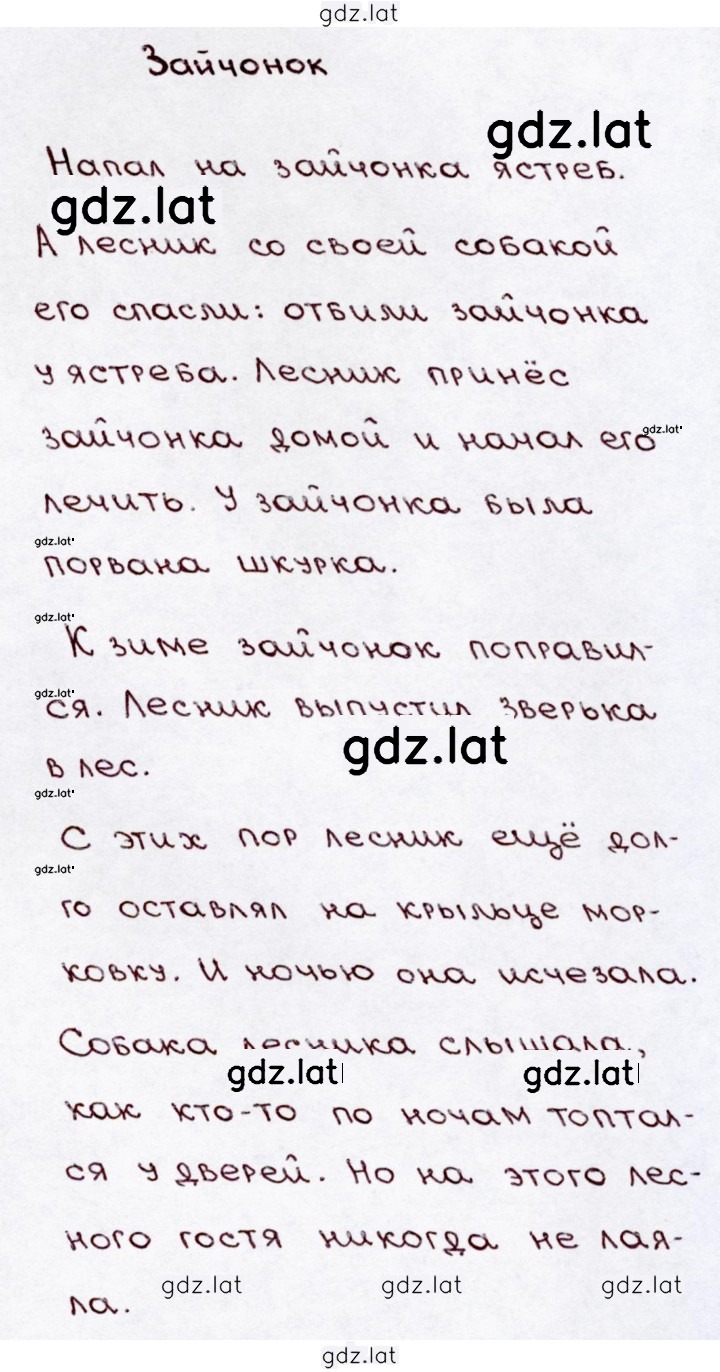 gdz.lat
Зайчонок
gdz.lat
Напал на зайчонка ястреб.
gdz.lat
А лесник со своей собакой
его спасли: отбили зайчонка
у ястреба. Лесник принёс
gdz.lat
зайчонка домой и начал его
лечить. У зайчонка была
gdz.lat
порвана шкурка.
gdz.lat
К зиме зайчонок поправил-
gdz.lat
ся. Лесник выпустил зверька
gdz.lat
в лес.
gdz.lat
С этих пор лесник ещё дол-
gdz.lat
го оставлял на крыльце мор-
ковку. И ночью она исчезала.
Собака лесника слышала,
gdz.lat gdz.lat
как кто-то по ночам топтал-
ся у дверей. Но на этого лес-
ного гостя никогда не лая-
gdz.lat gdz.lat gdz.lat
ла.
gdz.lat